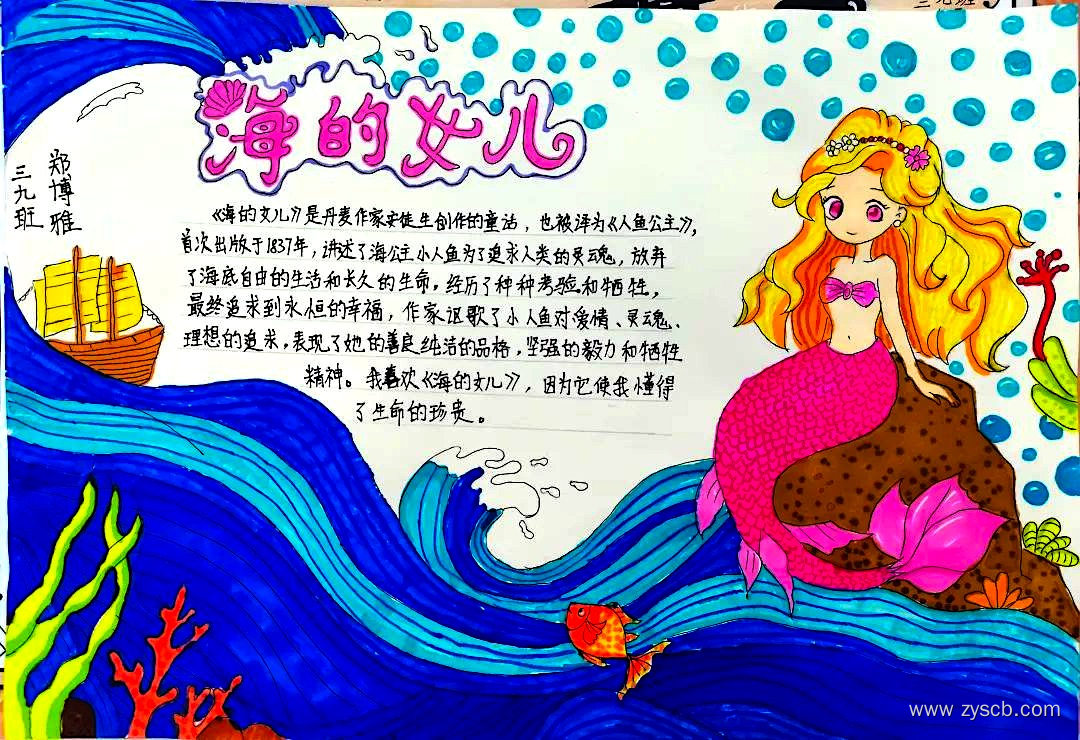 海的女儿
三九班
郑博雅
《海的女儿》是丹麦作家安徒生创作的童话，也被译为《人鱼公主》，
首次出版于1837年，讲述了海公主小人鱼为了追求人类的灵魂，放弃
了海底自由的生活和长久的生命，经历了种种考验和牺牲，
最终追求到永恒的幸福，作家讴歌了小人鱼对爱情、灵魂、
理想的追求，表现了她的善良纯洁的品格，坚强的毅力和牺牲
精神。我喜欢《海的女儿》，因为它使我懂得
了生命的珍贵。
www.zyscb.com